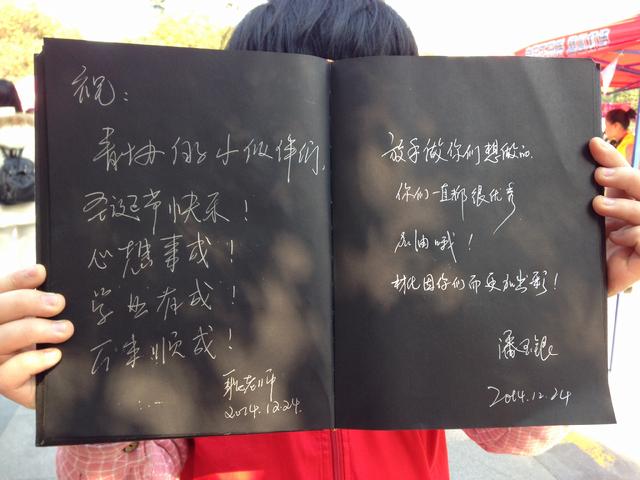 祝：
青协的小伙伴们，
圣诞节快乐！
心想事成！
学业有成！
万事顺成！
......
老师
2014.12.24.
放手做你们想做的.
你们一直都很优秀，
加油哦！
材化因你们而更加出彩！
潘玉银
2014.12.24